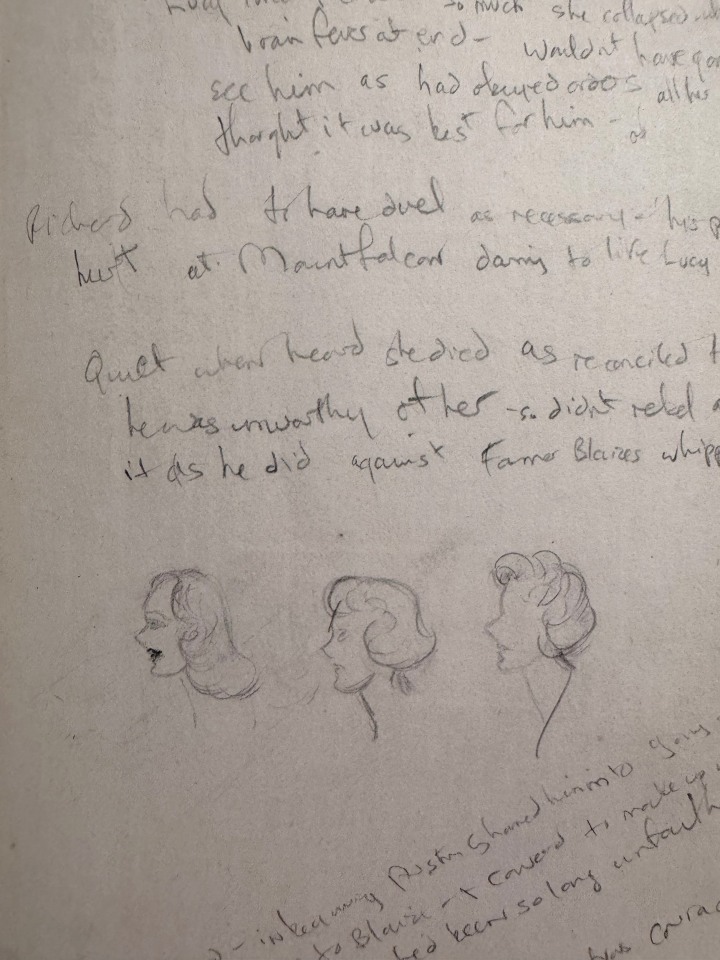 to much she collapsed
brain fever at end - wouldn't have
see him as had obeyed orders all his
thought it was best for him - as
Richard had to have duel as necessary - his
hurt at Mountfalcon daring to like Lucy
Quiet when heard she died as reconciled
he was unworthy of her - so didn't rebel
it as he did against Farmer Blaizes
Austin shamed him to going
to Blaize - & coward to make up
had been so long
was